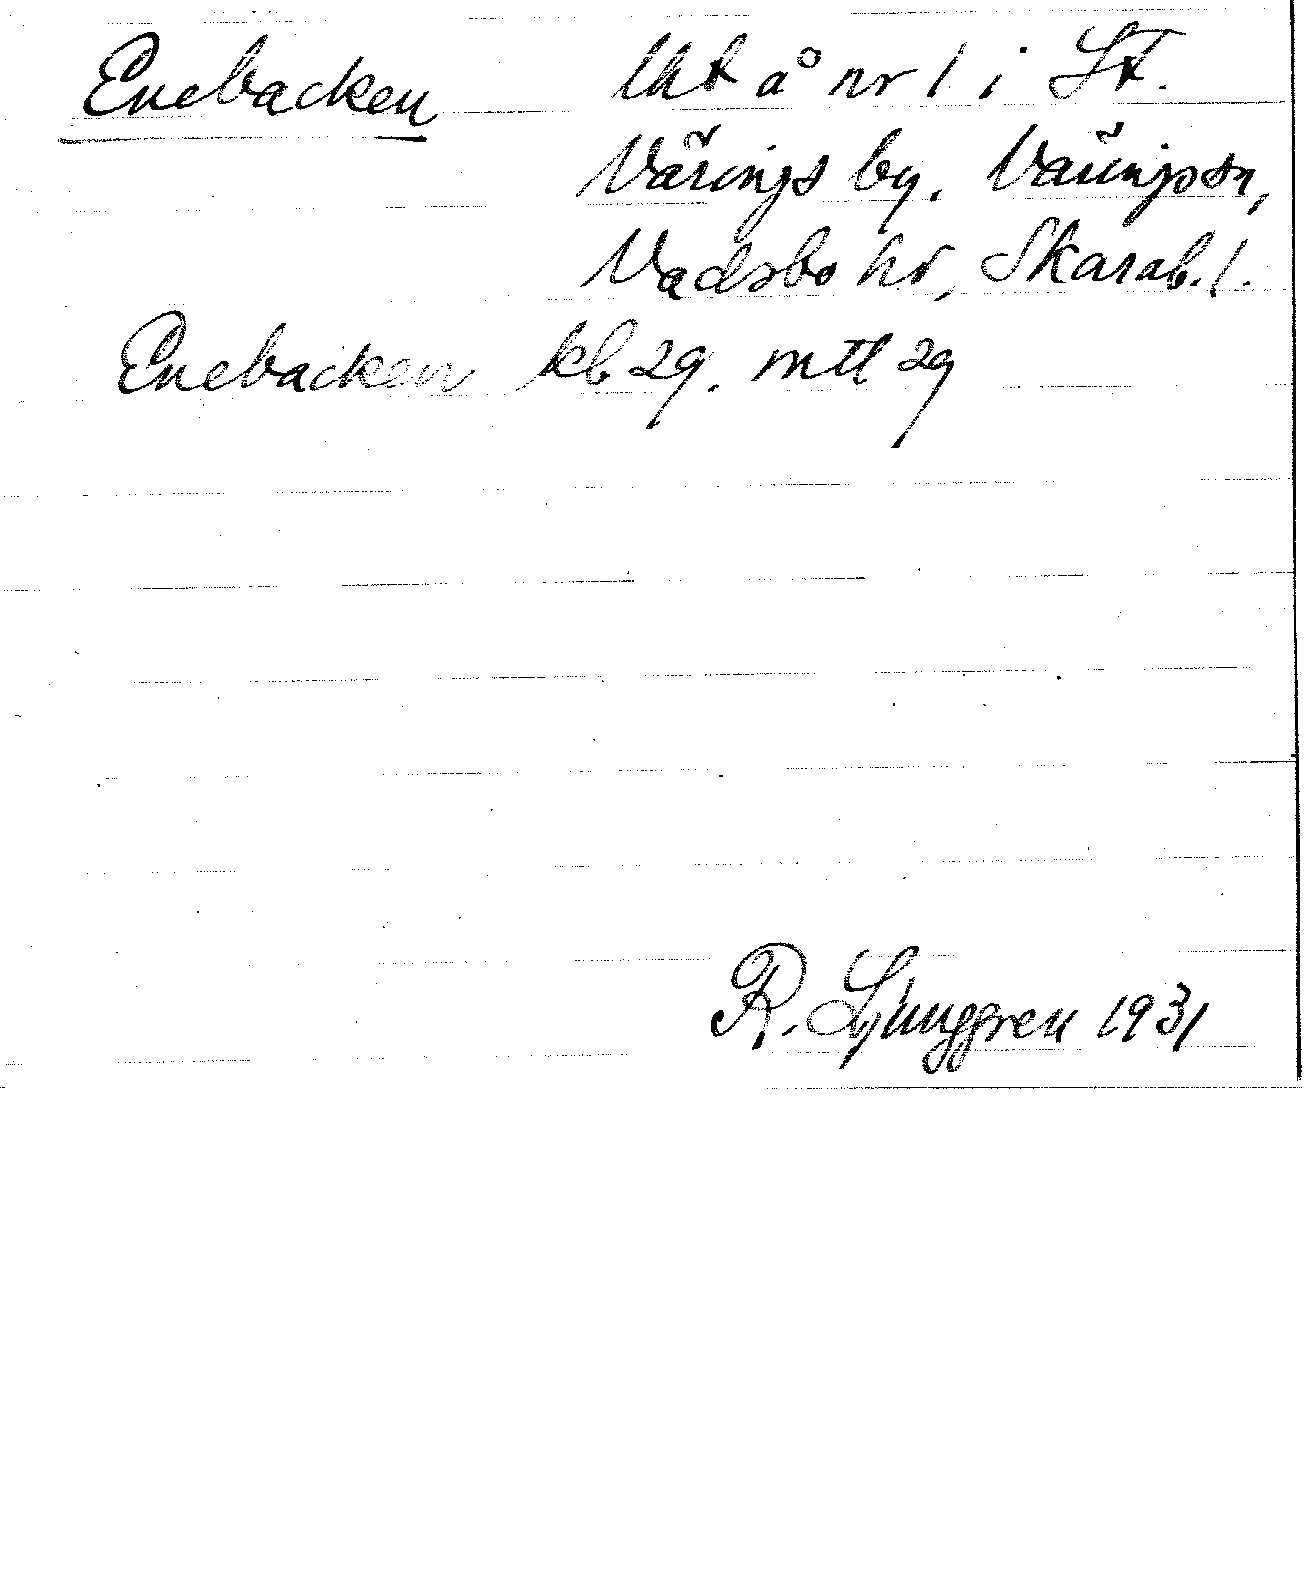 Enebacken lht å nr 1 i St.
Värings by. Värings sn,
Vadsbo hd, Skarab. l.
Enebacken kb 29. mtl 29
R. Ljunggren 1931